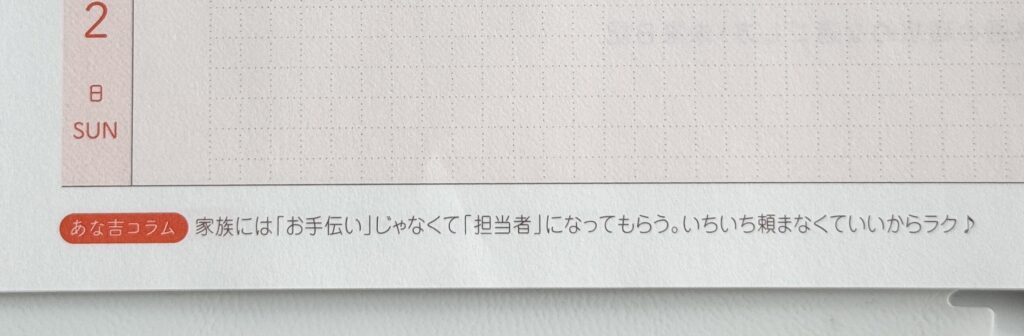 2
日
SUN
あな吉コラム 家族には「お手伝い」じゃなくて「担当者」になってもらう。いちいち頼まなくていいからラク♪